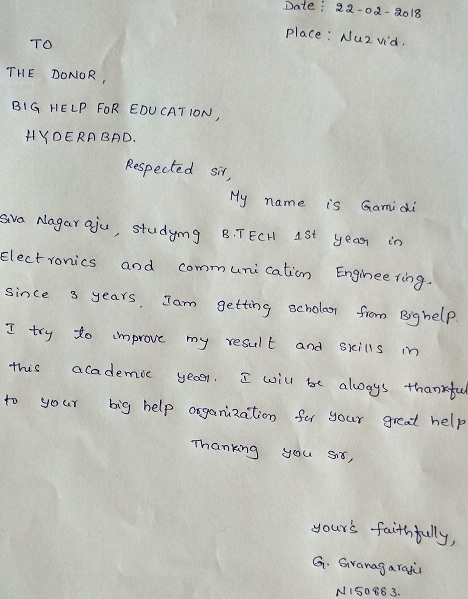 Date: 22-02-2018
Place: Nuzvid.
TO
THE DONOR,
BIG HELP FOR EDUCATION,
HYDERABAD.
Respected sir,
My name is Gamidi
Siva Nagaraju, studying B.TECH 1st year in
Electronics and communication Engineering.
Since 3 years. Iam getting scholar from Bighelp.
I try to improve my result and skills in
this academic year. I will be always thankful
to your big help organization for your great help
Thanking you sir,
your's faithfully,
G. Sivanagaraju
N150883.